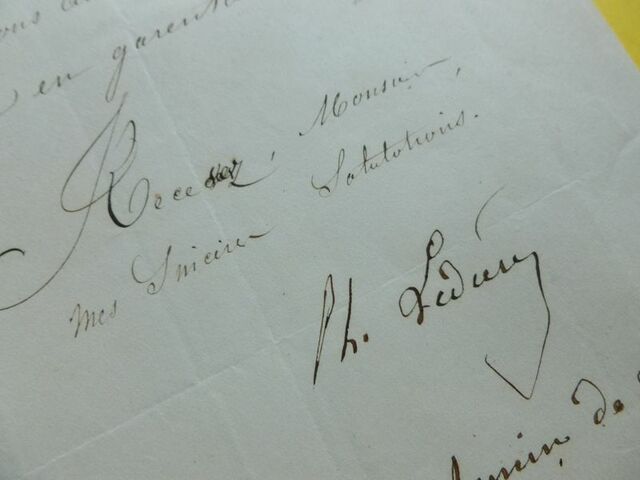 en garenti
Recevez, Monsieur,
mes Sincère Salutations.
Ph. Ledieu
de